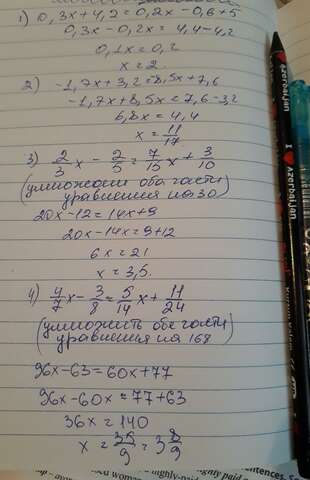 1) 0,3x+4,2=0,2x-0,6+5
0,3x-0,2x=4,4-4,2
0,1x=0,2
x=2
2) -1,7x+3,2=8,5x+7,6
-1,7x+8,5x=7,6-3,2
6,8x=4,4
x=11/17
3) 2/3x-2/5=7/15x+3/10
(умножаем обе части
уравнения на 30)
20x-12=14x+9
20x-14x=9+12
6x=21
x=3,5.
4) 4/7x-3/8=5/14x+11/24
(умножить обе части
уравнения на 168)
96x-63=60x+77
96x-60x=77+63
36x=140
x=35/9=3 8/9
I ♥ Azerbaijan
Azerbaijan